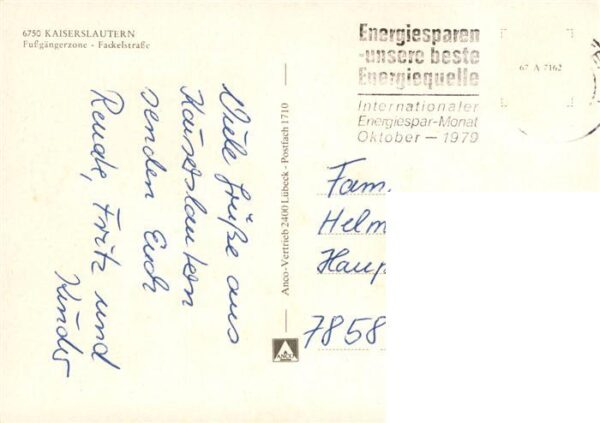 6750 KAISERSLAUTERN
Fußgängerzone - Fackelstraße
Viele Grüße aus
Kaiserslautern
senden Euch
Renate, Fritz und
Kinder
Anco-Vertrieb 2400 Lübeck - Postfach 1710
ANCO
Energiesparen
-unsere beste
Energiequelle
Internationaler
Energiespar-Monat
Oktober - 1979
67 A 7162
Fam.
Helm
Haup
7858